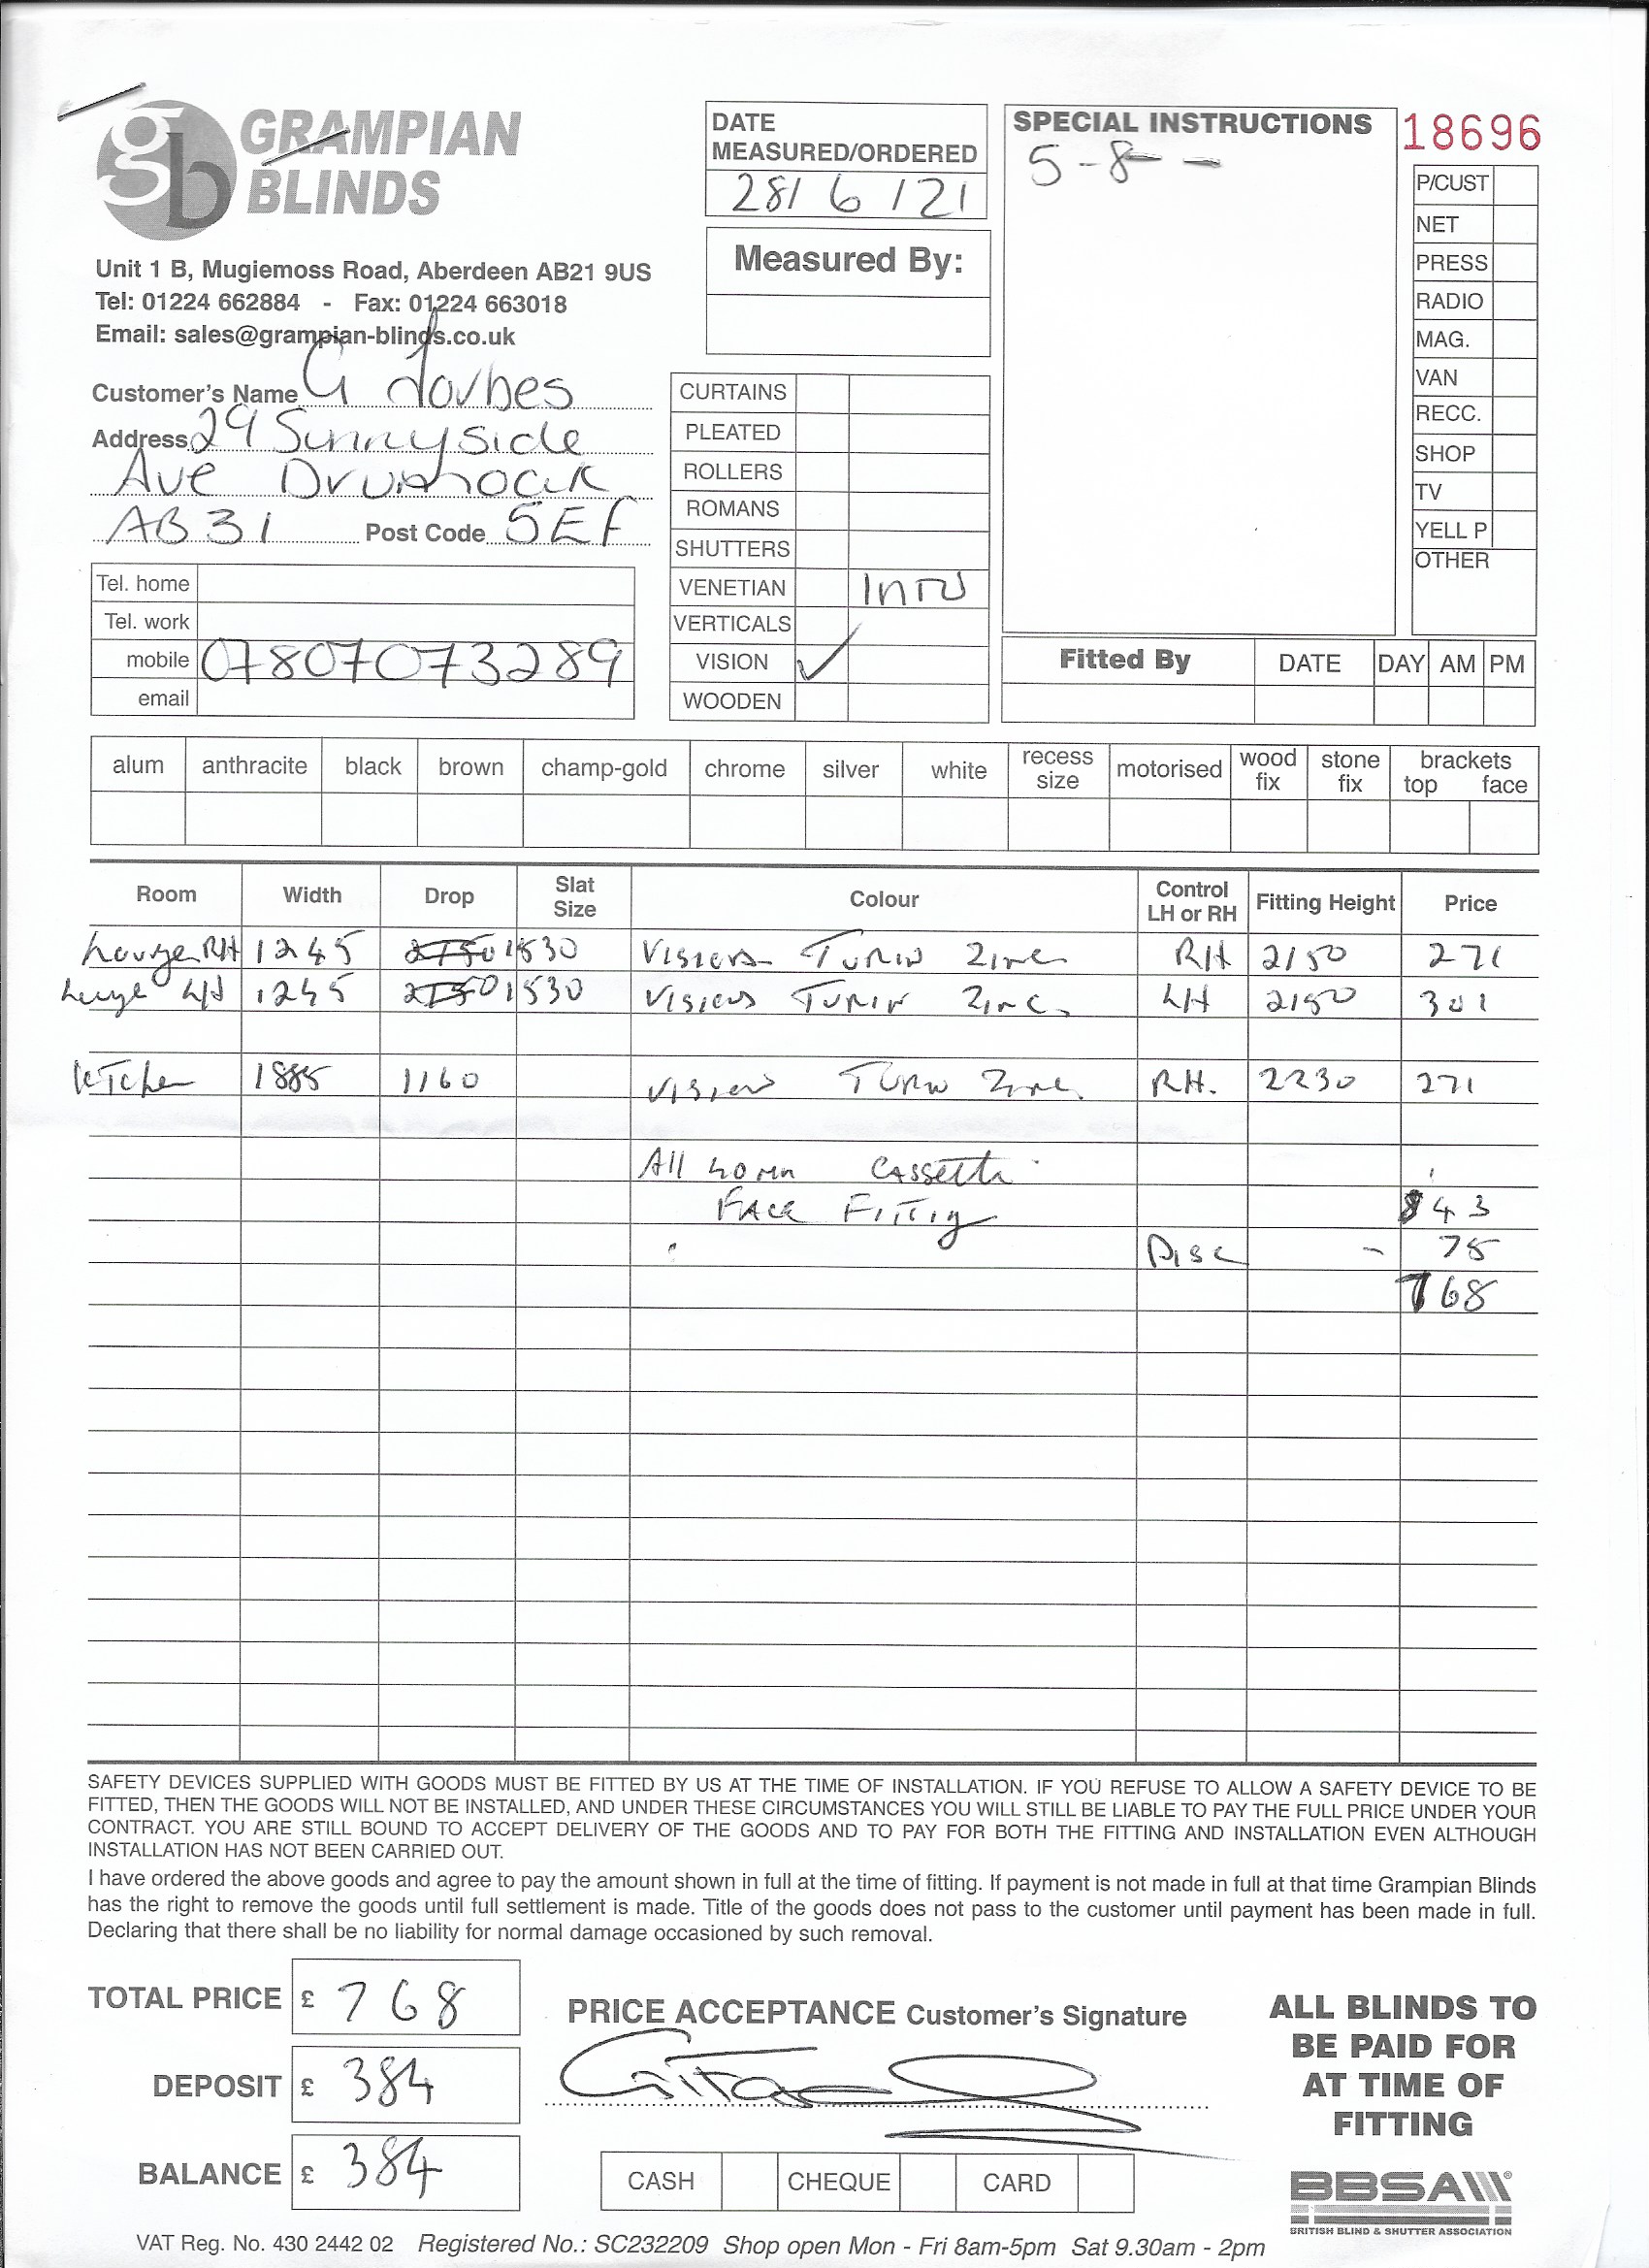 gb GRAMPIAN
BLINDS
Unit 1 B, Mugiemoss Road, Aberdeen AB21 9US
Tel: 01224 662884 - Fax: 01224 663018
Email: sales@grampian-blinds.co.uk
Customer's Name G Forbes
Address 29 Sunnyside
Ave Drumoak
AB31 Post Code 5EF
Tel. home
Tel. work
mobile 07807073289
email
DATE
MEASURED/ORDERED
28/6/21
Measured By:
CURTAINS
PLEATED
ROLLERS
ROMANS
SHUTTERS
VENETIAN INTU
VERTICALS
VISION ✓
WOODEN
SPECIAL INSTRUCTIONS
5-8 -
18696
P/CUST
NET
PRESS
RADIO
MAG.
VAN
RECC.
SHOP
TV
YELL P
OTHER
Fitted By DATE DAY AM PM
alum anthracite black brown champ-gold chrome silver white recess size motorised wood fix stone fix brackets top face
Room Width Drop Slat Size Colour Control LH or RH Fitting Height Price
Lounge RH 1245 2150 1530 Vision Turin Zinc RH 2150 271
Lounge LH 1245 2150 1530 Vision Turin Zinc LH 2150 301
Kitchen 1885 1160 Vision Turin Zinc RH. 2230 271
All Cassette
Face Fitting 843
Disc - 75
768
SAFETY DEVICES SUPPLIED WITH GOODS MUST BE FITTED BY US AT THE TIME OF INSTALLATION. IF YOU REFUSE TO ALLOW A SAFETY DEVICE TO BE
FITTED, THEN THE GOODS WILL NOT BE INSTALLED, AND UNDER THESE CIRCUMSTANCES YOU WILL STILL BE LIABLE TO PAY THE FULL PRICE UNDER YOUR
CONTRACT. YOU ARE STILL BOUND TO ACCEPT DELIVERY OF THE GOODS AND TO PAY FOR BOTH THE FITTING AND INSTALLATION EVEN ALTHOUGH
INSTALLATION HAS NOT BEEN CARRIED OUT.
I have ordered the above goods and agree to pay the amount shown in full at the time of fitting. If payment is not made in full at that time Grampian Blinds
has the right to remove the goods until full settlement is made. Title of the goods does not pass to the customer until payment has been made in full.
Declaring that there shall be no liability for normal damage occasioned by such removal.
TOTAL PRICE £ 768
DEPOSIT £ 384
BALANCE £ 384
PRICE ACCEPTANCE Customer's Signature
CASH CHEQUE CARD
ALL BLINDS TO
BE PAID FOR
AT TIME OF
FITTING
BBSA
BRITISH BLIND & SHUTTER ASSOCIATION
VAT Reg. No. 430 2442 02 Registered No.: SC232209 Shop open Mon - Fri 8am-5pm Sat 9.30am - 2pm